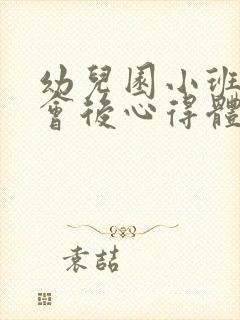 幼兒園小班
會後心得體
袁喆